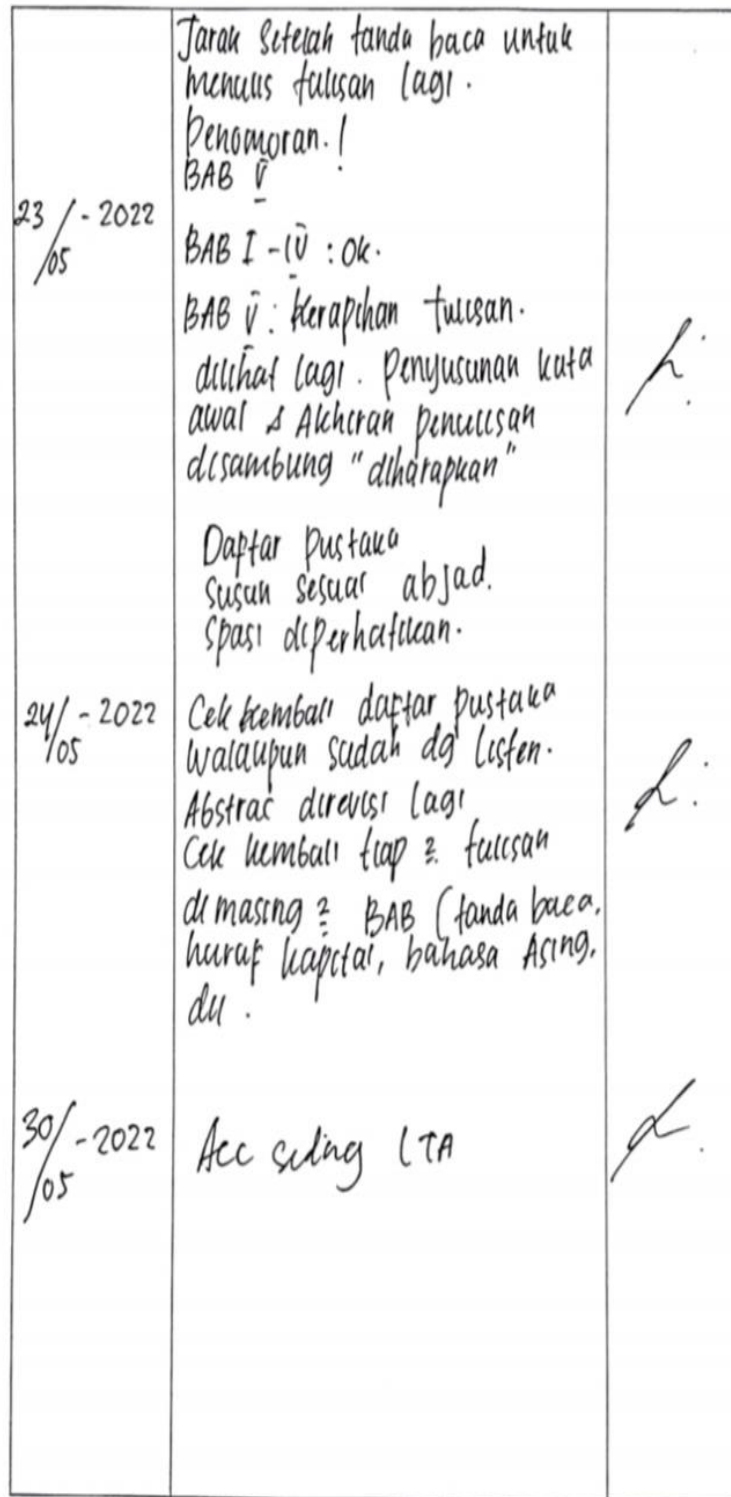 Jarak setelah tanda baca untuk
menulis tulisan lagi.
Penomoran.!
BAB V
23/05 - 2022
BAB I - IV : Ok.
BAB V : Kerapihan tulisan.
dilihat lagi. Penyusunan kata
awal & Akhiran penulisan
disambung "diharapkan"
Daftar Pustaka
Susun sesuai abjad.
Spasi diperhatikan.
24/05 - 2022
Cek kembali daftar pustaka
walaupun sudah dg listen.
Abstrac direvisi lagi
Cek kembali tiap 2 tulisan
di masing 2 BAB (tanda baca,
huruf kapital, bahasa Asing,
dll.
30/05 - 2022
Acc siding LTA